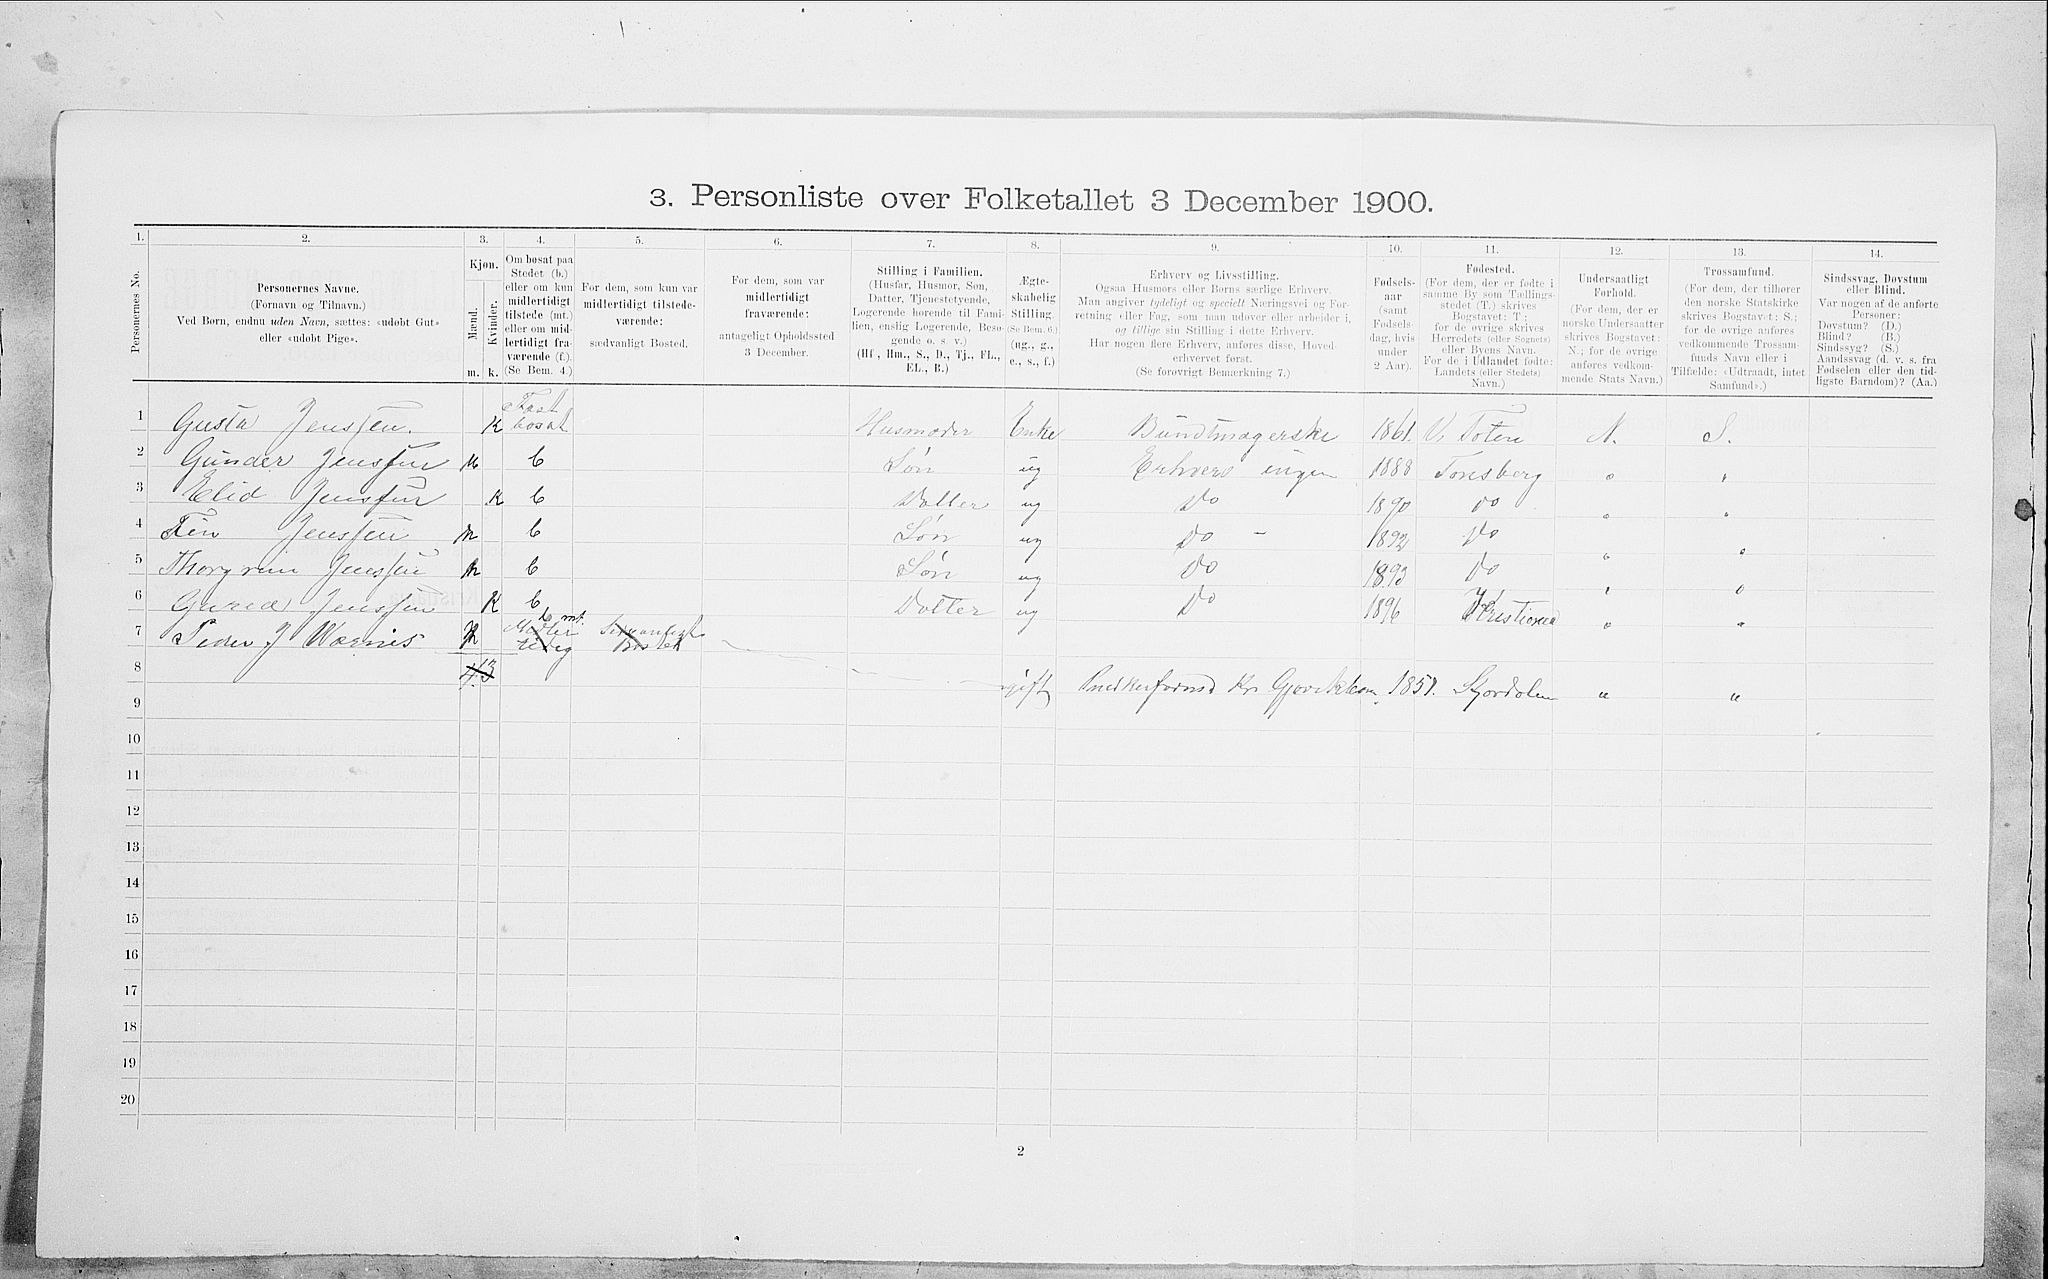 3. Personliste over Folketallet 3 December 1900.
1. 2. 3. 4. 5. 6. 7. 8. 9. 10. 11. 12. 13. 14.
Personernes No.
Personernes Navne.
(Fornavn og Tilnavn.)
Ved Børn, endnu uden Navn, sættes: «udøbt Gut»
eller «udøbt Pige».
Kjøn.
Mænd.
Kvinder.
m. k.
Om bosat paa
Stedet (b.)
eller om kun
midlertidigt
tilstede (mt.)
eller om mid-
lertidigt fra-
værende (f.).
(Se Bem. 4.)
For dem, som kun var
midlertidigt tilstede-
værende:
sædvanligt Bosted.
For dem, som var
midlertidigt
fraværende:
antageligt Opholdssted
3 December.
Stilling i Familien.
(Husfar, Husmor, Søn,
Datter, Tjenestetyende,
Logerende hørende til Fami-
lien, enslig Logerende, Besø-
gende o. s. v.)
(Hf., Hm., S., D., Tj., FL.,
EL., B.)
Ægte-
skabelig
Stilling.
(Se Bem. 6.)
(ug., g.,
e., s., f.)
Erhverv og Livsstilling.
Ogsaa Husmors eller Børns særlige Erhverv.
Man angiver tydeligt og specielt Næringsvei og For-
retning eller Fag, som man udøver eller arbeider i,
og tillige sin Stilling i dette Erhverv.
Har nogen flere Erhverv, anføres disse, Hoved-
erhvervet først.
(Se forøvrigt Bemærkning 7.)
Fødsels-
aar
(samt
Fødsels-
dag, hvis
under
2 Aar).
Fødested.
(For dem, der er fødte i
samme By som Tællings-
stedet (T.) skrives
Bogstavet: T.;
for de øvrige skrives
Herredets (eller Sognets)
eller Byens Navn.
For de i Udlandet fødte:
Landets (eller Stedets)
Navn.)
Undersaatligt
Forhold.
(For dem, der er
norske Undersaatter
skrives Bogstavet:
N.; for de øvrige
anføres vedkom-
mende Stats Navn.)
Trossamfund.
(For dem, der tilhører
den norske Statskirke
skrives Bogstavet: S.;
for de øvrige anføres
vedkommende Trossam-
funds Navn eller i
Tilfælde: «Udtraadt, intet
Samfund».)
Sindssvag, Døvstum
eller Blind.
Var nogen af de anførte
Personer:
Døvstum? (D.)
Blind? (B.)
Sindssyg? (S.)
Aandssvag (d. v. s. fra
Fødselen eller den tid-
ligste Barndom)? (Aa.)
1 Gusta Jenssen. K Fast bosat Husmoder Enke Bundtmagerske 1861. V. Toten N. S.
2 Gunder Jenssen m b Søn ug Erhverv ingen 1888 Tønsberg " "
3 Elid Jenssen K b Dotter ug Do 1890 do " "
4 Fin Jenssen m b Søn ug Do - 1892 Do " "
5 Thorgrim Jenssen m b Søn ug Do 1893 Do " "
6 Jenssen K b Dotter ug Do 1896 Kristiania " "
7 Peder J Wærnes m b mt.
8 gift 1857. Stjordalen " "
9
10
11
12
13
14
15
16
17
18
19
20
2